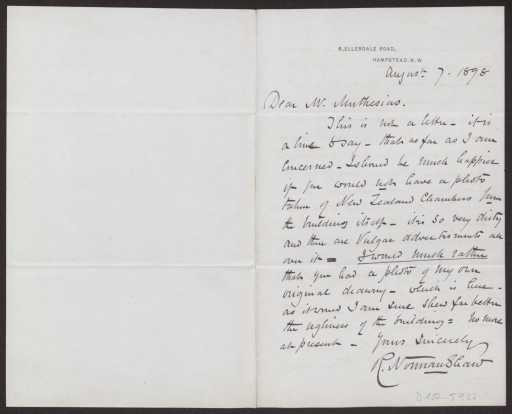 6, ELLERDALE ROAD,
HAMPSTEAD. N.W.
August 7. 1898
Dear Mr. Muthesius.
This is not a letter - it is
a line to say - that as far as I am
concerned - I should be much happier
if you would not have a photo
taken of New Zealand Chambers from
the building itself - it is so very dirty
and there are vulgar advertisements all
over it - I would much rather
that you had a photo of my own
original drawing - which is here -
as it would I am sure shew far better
the ugliness of the building = no more
at present - Yours Sincerely
R. Norman Shaw